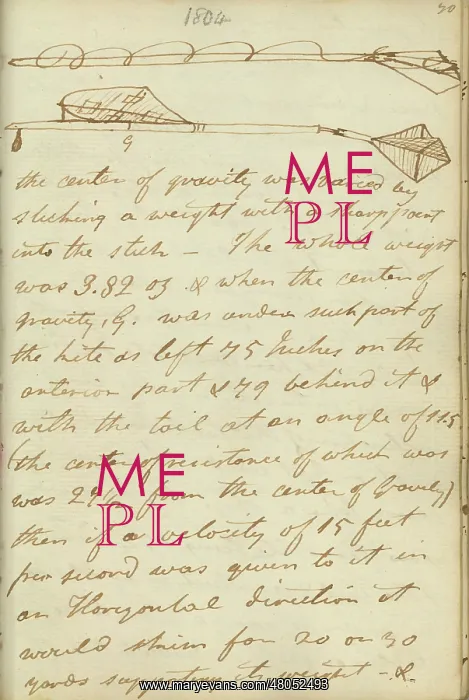 1804
G
the center of gravity was varied by
sticking a weight with a sharp point
into the stick – The whole weight
was 3.82 oz & when the center of
gravity, G. was under such part of
the kite as left 75 Inches on the
anterior part & 79 behind it &
with the tail at an angle of 11.5
(the center of resistance of which was
was from the center of Gravity)
then if a velocity of 15 feet
per second was given to it in
an Horizontal direction it
would skim for 20 or 30
yards supporting its weight – &.
ME
PL
ME
PL
www.maryevans.com/48052493